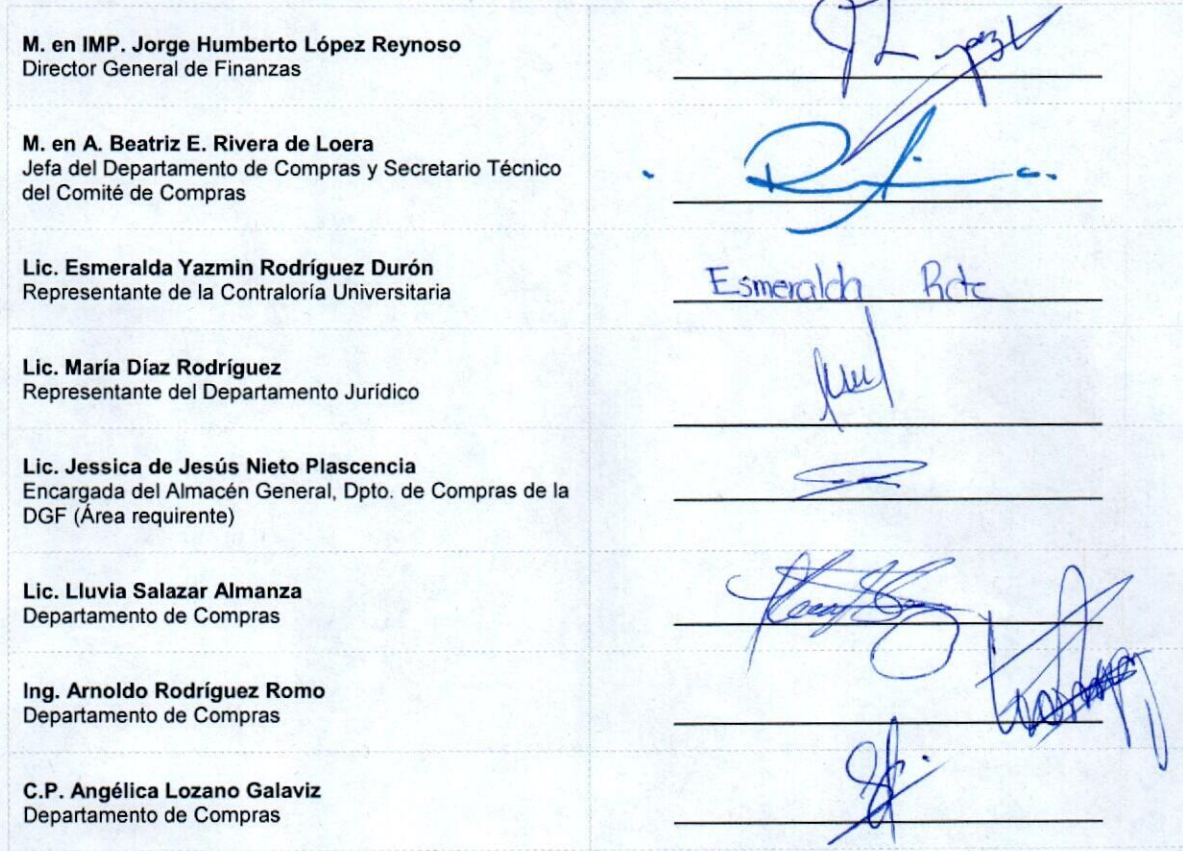 M. en IMP. Jorge Humberto López Reynoso
Director General de Finanzas
M. en A. Beatriz E. Rivera de Loera
Jefa del Departamento de Compras y Secretario Técnico
del Comité de Compras
Lic. Esmeralda Yazmin Rodríguez Durón
Representante de la Contraloría Universitaria
Esmeralda
Lic. María Díaz Rodríguez
Representante del Departamento Jurídico
Lic. Jessica de Jesús Nieto Plascencia
Encargada del Almacén General, Dpto. de Compras de la
DGF (Área requirente)
Lic. Lluvia Salazar Almanza
Departamento de Compras
Ing. Arnoldo Rodríguez Romo
Departamento de Compras
C.P. Angélica Lozano Galaviz
Departamento de Compras